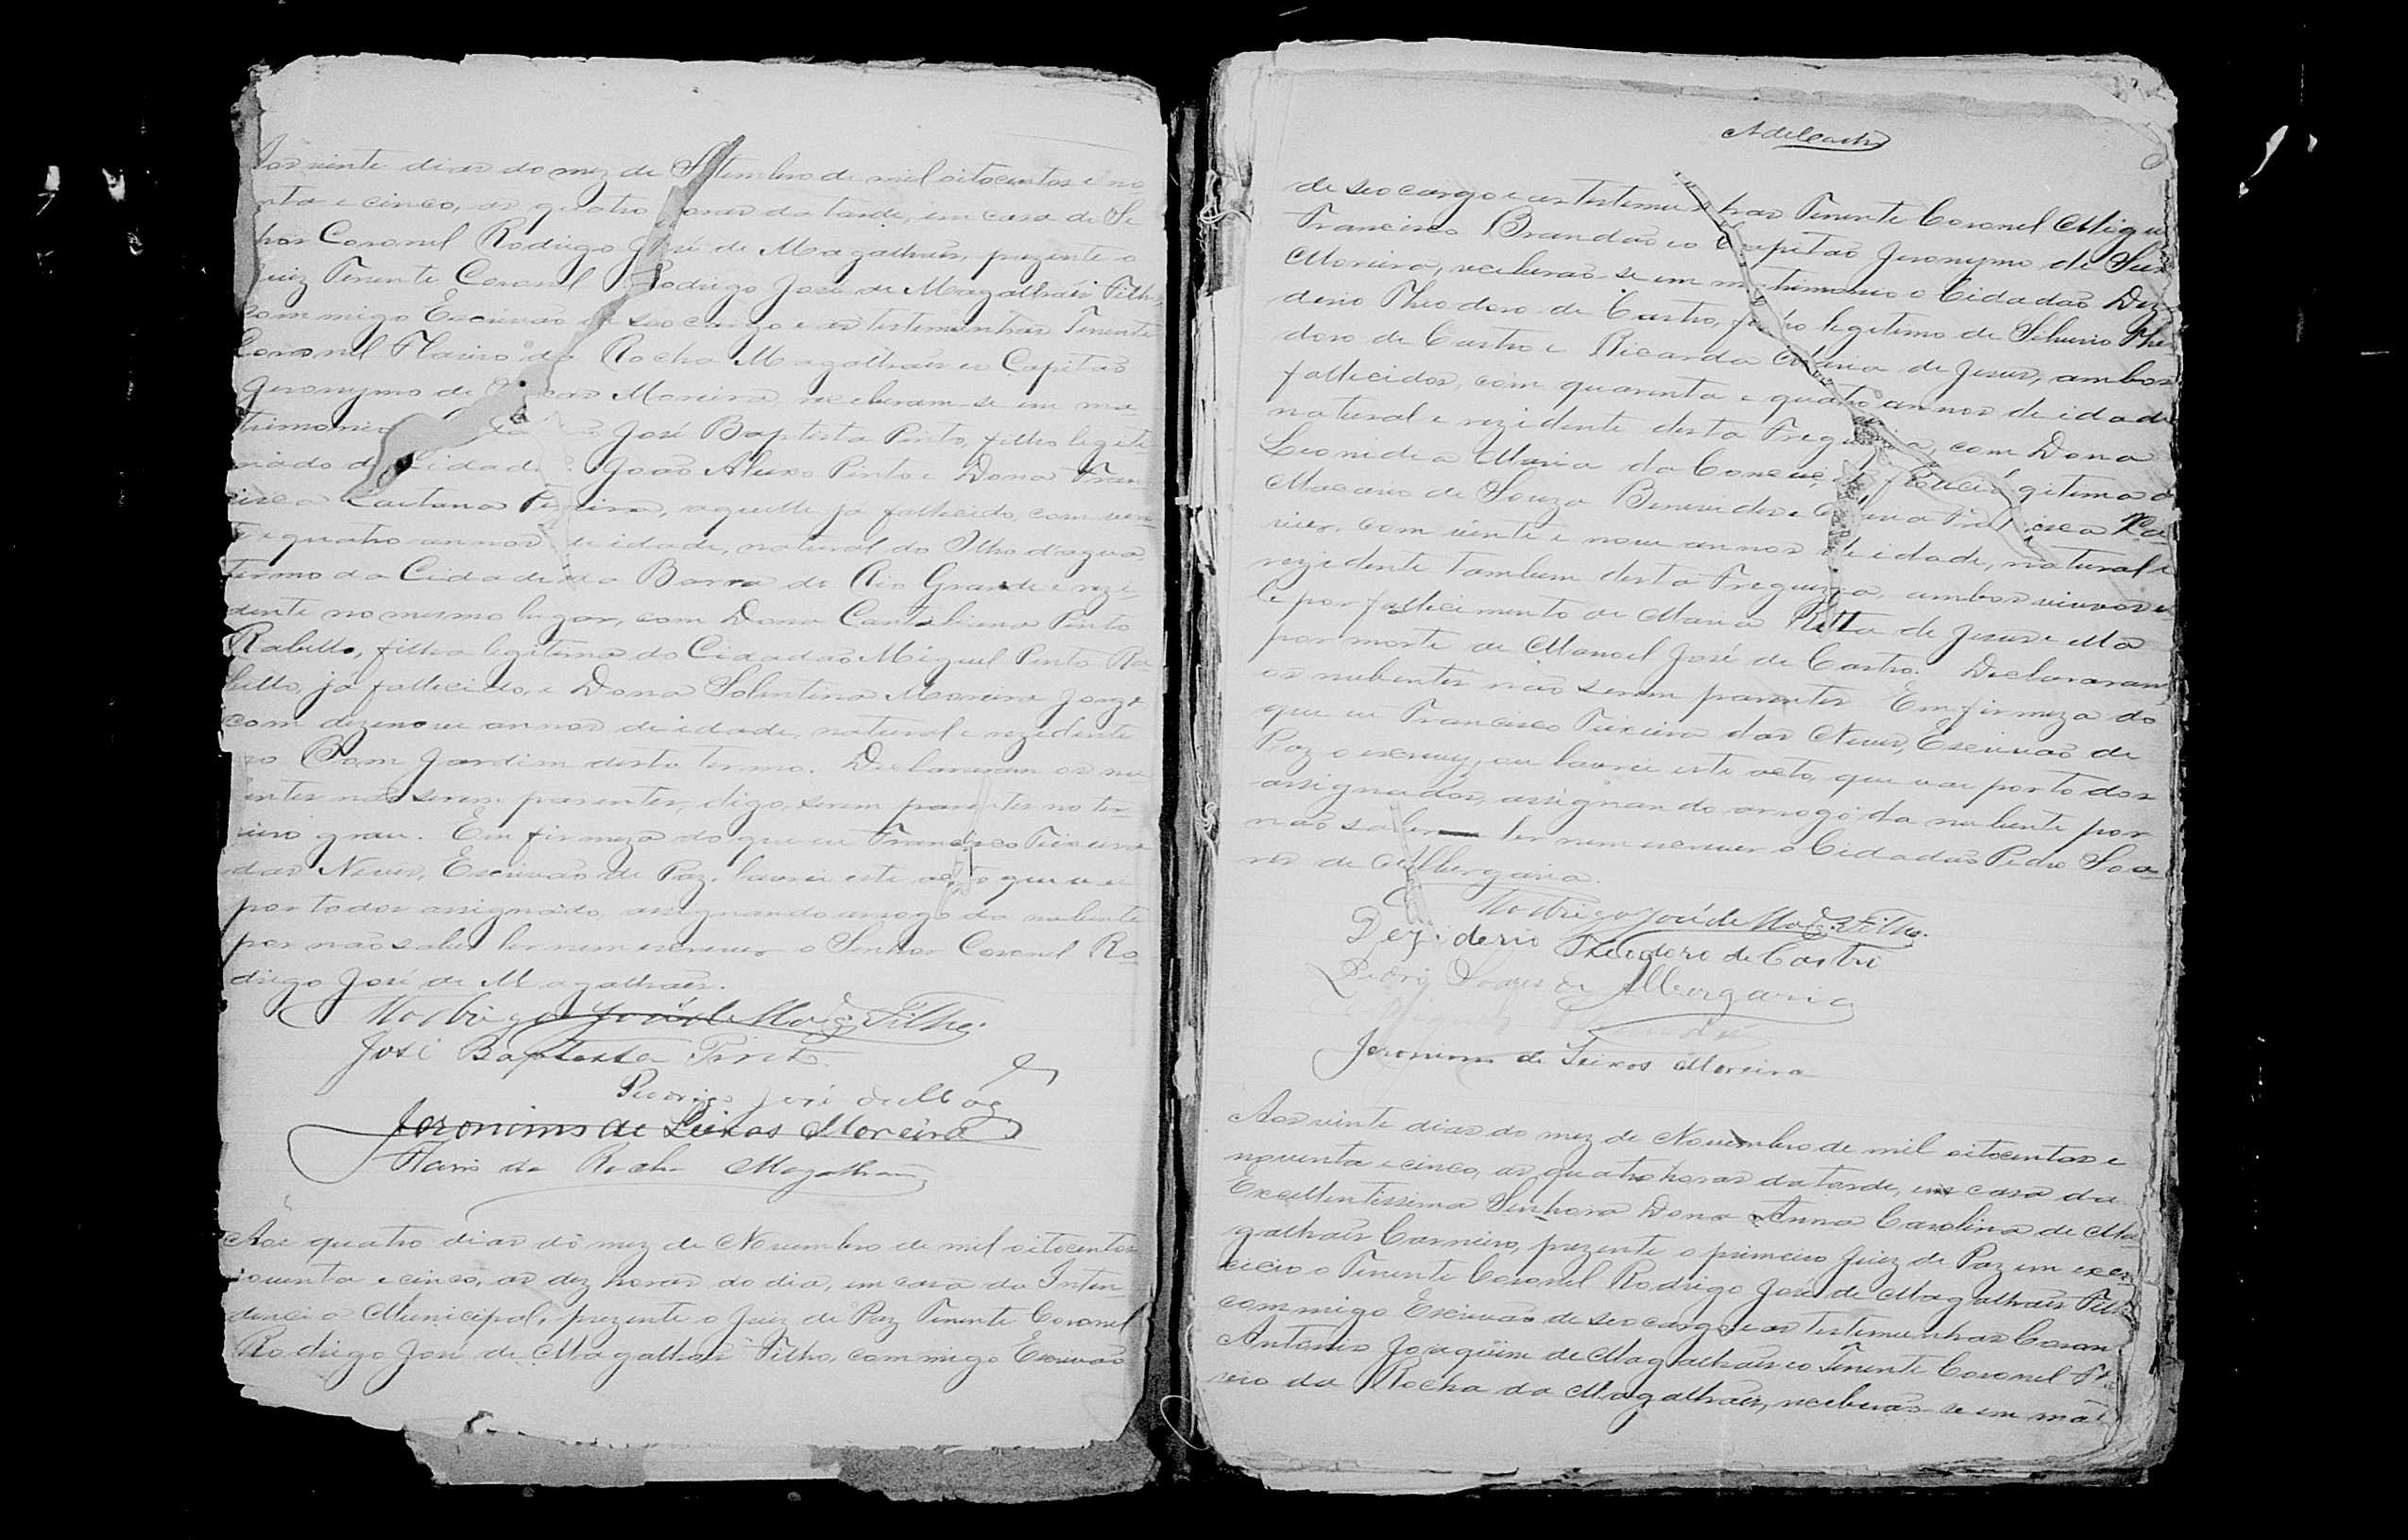 Aos vinte dias do mez de Setembro de mil oitocentos e no
nta e cinco, as quatro horas da tarde, em casa do Se
hor Coronel Rodrigo José de Magalhães, prezente o
Juiz Tenente Coronel Rodrigo José de Magalhães Filho
commigo Escrivão de seo cargo e as testemunhas Tenente
Coronel Flavio da Rocha Magalhães e o Capitão
Jeronymo de Moreira, receberam-se em ma
trimonio José Baptista Pinto, filho legiti
mado do Cidadão João Aleixo Pinto e Dona Fran
cisca Caetana, aquelle já fallecido, com vin
e quatro annos de idade, natural do Olho d'agua,
termo da Cidade da Barra do Rio Grande e rezi
dente no mesmo lugar, com Dona Pinto
Rabello, filha legitima do Cidadão Miguel Pinto Ra
bello, já fallecido, e Dona Solentina Moreira Jorge
com dezenove annos de idade, natural e rezidente
no Bom Jardim desto termo. Declararam os nu
entes não serem parentes, digo, serem parentes no ter
ceiro grau. Em firmeza do que eu Francisco Teixeira
das Neves, Escrivão de Paz, lavrei este acto que vai
por todos assignado, assignando arrogo da nubente
por não saber ler nem escrever o Senhor Coronel Ro
drigo José de Magalhães.
Rodrigo José de Mag. Filho
José Baptista Pinto.
Rodrigo José de Mag
Jeronimo de Seixas Moreira
Flavio da Rocha Magalhães
Aos quatro dias do mez de Novembro de mil oitocentos
noventa e cinco, as dez horas do dia, em casa da Inten
dencia Municipal, prezente o Juiz de Paz Tenente Coronel
Rodrigo José de Magalhães Filho, commigo Escrivão
de seo cargo e as testemunhas Tenente Coronel Migu
Francisco Brandão e o Capitão Jeronymo de Sei
Moreira, receberão-se em matrimonio o Cidadão Dezi
derio Theodoro de Castro, filho legitimo de Silverio Theo
doro de Castro e Ricarda Maria de Jesus, ambos
fallecidos, com quarenta e quatro annos de idade
natural e rezidente desta Freguezia, com Dona
Leonidia Maria da Conceição, filha legitima de
Macario de Souza Benevides e Francisca Xa
vier, com vinte e nove annos de idade, natural e
rezidente tambem desta Freguezia, ambos viuvos e
le por fallecimento de Maria Ritta de Jesus e ella
por morte de Manoel José de Castro. Declararam
os nubentes não serem parentes. Em firmeza do
que eu Francisco Teixeira das Neves, Escrivão de
Paz o escrevy, ou lavrei este acto, que vae por todos
assignados, assignando arrogo da nubente por
não saber ler nem escrever o Cidadão Pedro Soa
res de Albergaria.
Rodrigo José de Mag. Filho.
Deziderio Theodoro de Castro
Pedro Soares de Albergaria
Jeronimo de Seixas Moreira
Aos vinte dias do mez de Novembro de mil oitocentos e
noventa e cinco, as quatro horas da tarde, em casa da
Excellentissima Senhora Dona Anna Carolina de Ma
galhães Carneiro, prezente o primeiro Juiz de Paz em exer
cicio o Tenente Coronel Rodrigo José de Magalhães Filho
commigo Escrivão de seo cargo e as testemunhas Coron
Antonio Joaquim de Magalhães e o Tenente Coronel Fl
vio da Rocha da Magalhães, receberão-se em ma